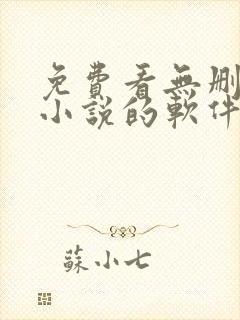 免費看無刪
小說的軟件
蘇小七